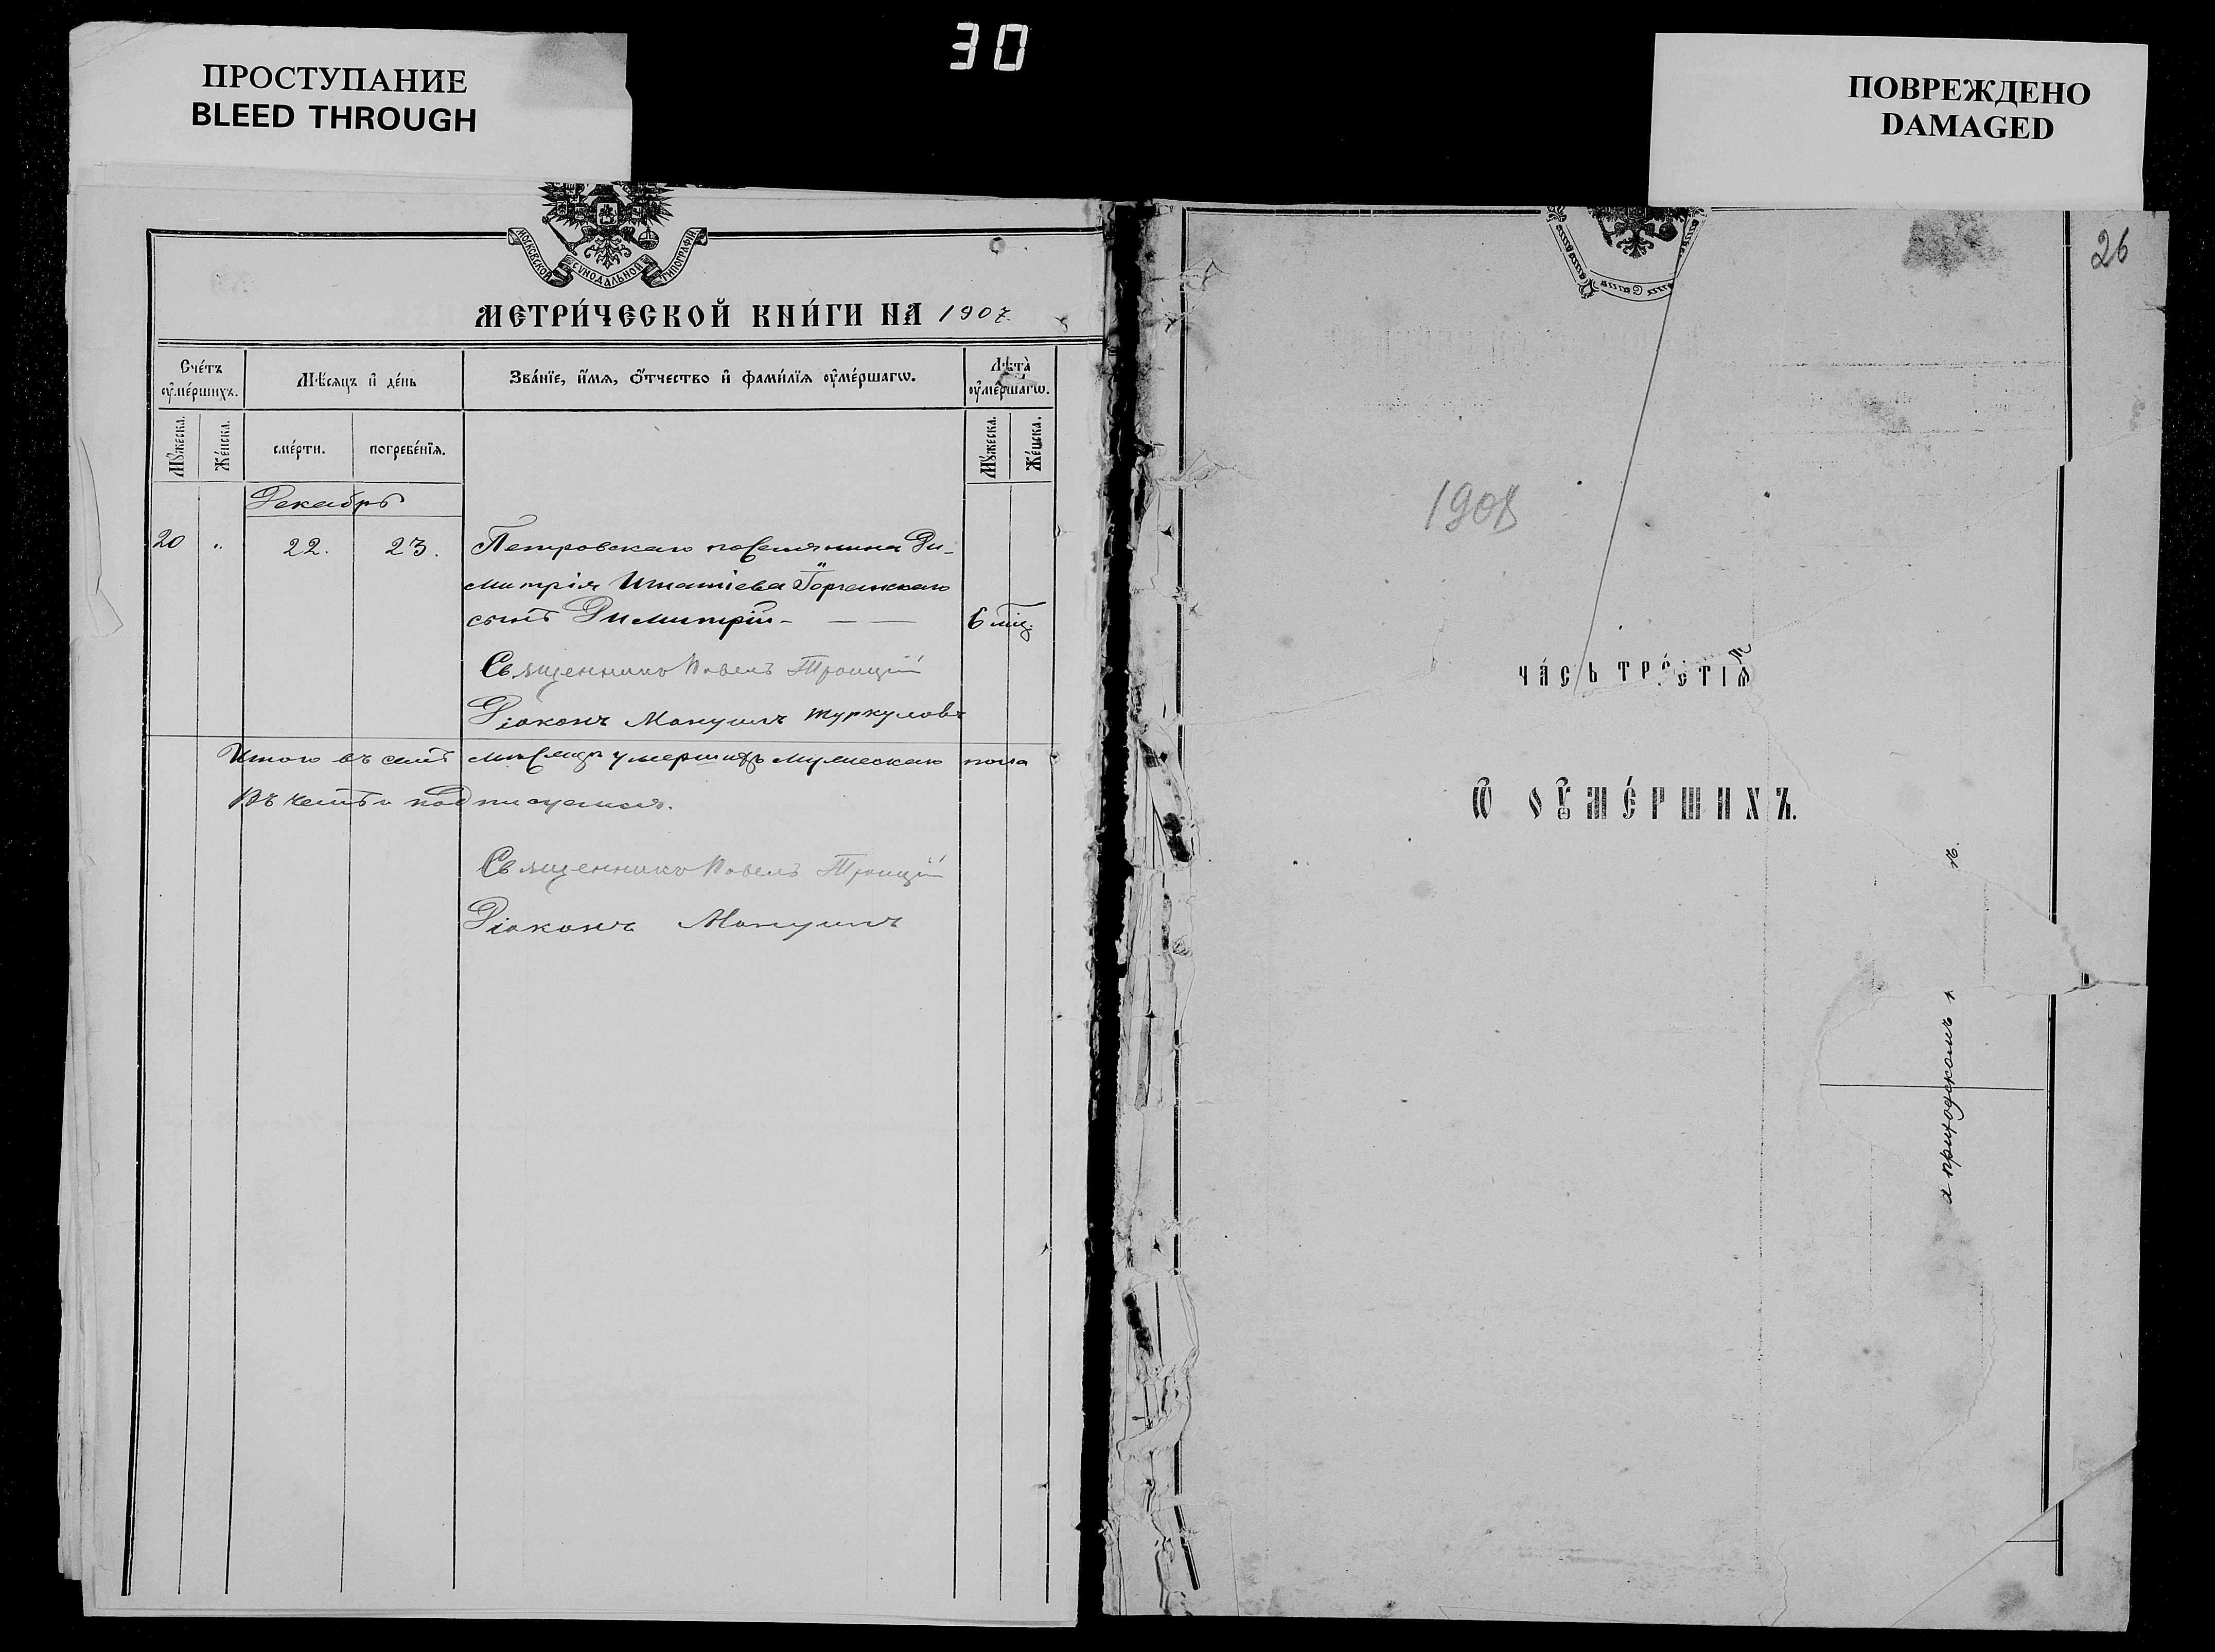 30
ПРОСТУПАНИЕ
BLEED THROUGH
МОСКОВСКОЙ СѴНОДАЛЬНОЙ ТИПОГРАФІИ
МЕТРИ́ЧЕСКОЙ КНИ́ГИ НА 1907
Сче́тъ ᲂу҆ме́ршихъ.
Мѣ́сяцъ и҆ де́нь
Зва́нїе, и҆́мѧ, ѻ҆́тчество и҆ фами́лїѧ ᲂу҆ме́ршагѡ.
Лѣ́та ᲂу҆ме́ршагѡ.
Мꙋ́жеска.
Же́нска.
сме́рти.
погребе́нїѧ.
Мꙋ́жеска.
Же́нска.
Декабрь
20 „ 22. 23. Петровскаго поселянина Ди-
митрія Игнатіева
сынъ Димитрій - 6 мѣ.
Священникъ Павелъ Троицкій
Діаконъ Мануилъ Туркуловъ
Итого въ семъ мѣсяцѣ умершихъ мужескаго пола
Въ чемъ и подписуемся.
Священникъ Павелъ Троицкій
Діаконъ Мануилъ
ПОВРЕЖДЕНО
DAMAGED
26
1908
ЧА́СТЬ ТРЕ́ТІѦ
Ѽ ОУ҆МЕ́РШИХЪ.
приходскомъ